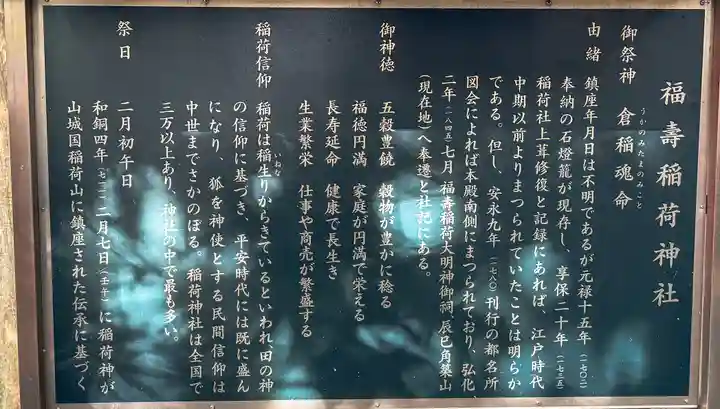 福壽稲荷神社
御祭神　倉稲魂命
うかのみたまのみこと
由緒　鎮座年月日は不明であるが元禄十五年（一七〇二）
奉納の石燈籠が現存し、享保二十年（一七三五）
稲荷社上葺修復と記録にあれば、江戸時代
中期以前よりまつられていたことは明らか
である。但し、安永九年（一七八〇）刊行の都名所
図会によれば本殿南側にまつられており、弘化
二年（一八四五）七月 福壽稲荷大明神御祠、辰巳角築山
（現在地）へ奉遷と社記にある。
御神徳　五穀豊饒　穀物が豊かに稔る
福徳円満　家庭が円満で栄える
長寿延命　健康で長生き
生業繁栄　仕事や商売が繁盛する
稲荷信仰　稲荷は稲生りからきているといわれ、田の神
いねな
の信仰に基づき、平安時代には既に盛ん
になり、狐を神使とする民間信仰は
中世までさかのぼる。稲荷神社は全国で
三万以上あり、神社の中で最も多い。
祭日　二月初午日
和銅四年（七一一）二月七日（壬午）に稲荷神が
山城国稲荷山に鎮座された伝承に基づく